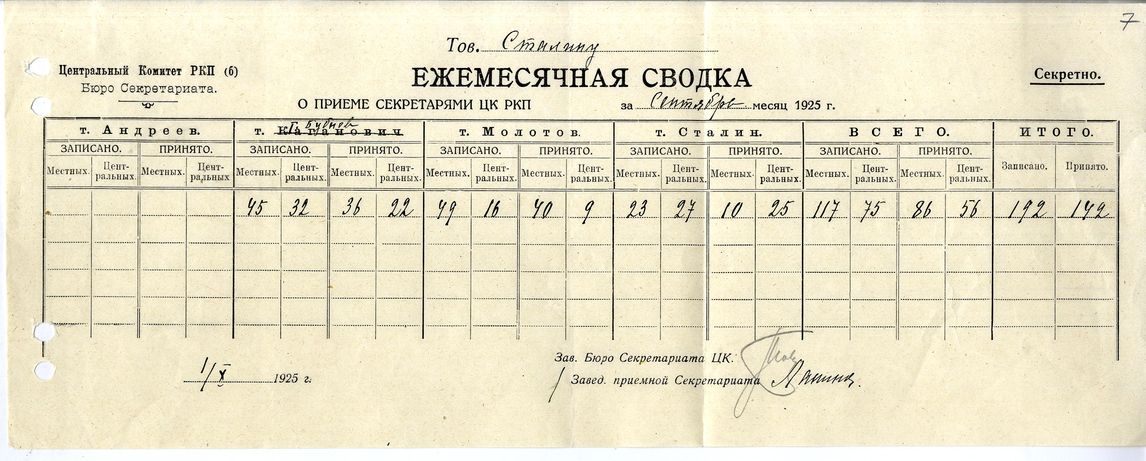 7
Тов. Сталину
Центральный Комитет РКП (б)
Бюро Секретариата.
ЕЖЕМЕСЯЧНАЯ СВОДКА
Секретно.
О ПРИЕМЕ СЕКРЕТАРЯМИ ЦК РКП за Сентябрь месяц 1925 г.
т. Андреев. т. Каганович. Бубнов т. Молотов. т. Сталин. ВСЕГО. ИТОГО.
ЗАПИСАНО. ПРИНЯТО. ЗАПИСАНО. ПРИНЯТО. ЗАПИСАНО. ПРИНЯТО. ЗАПИСАНО. ПРИНЯТО. ЗАПИСАНО. ПРИНЯТО. Записано. Принято.
Местных. Цент-ральных. Местных. Цент-ральных Местных. Цент-ральных. Местных. Цент-ральных. Местных. Цент-ральных. Местных. Цент-ральных. Местных. Цент-ральных. Местных. Цент-ральных. Местных. Цент-ральных. Местных. Цент-ральных.
45 32 36 22 49 16 40 9 23 27 10 25 117 75 86 56 192 142
Зав. Бюро Секретариата ЦК.
1/X 1925 г.
Завед. приемной Секретариата